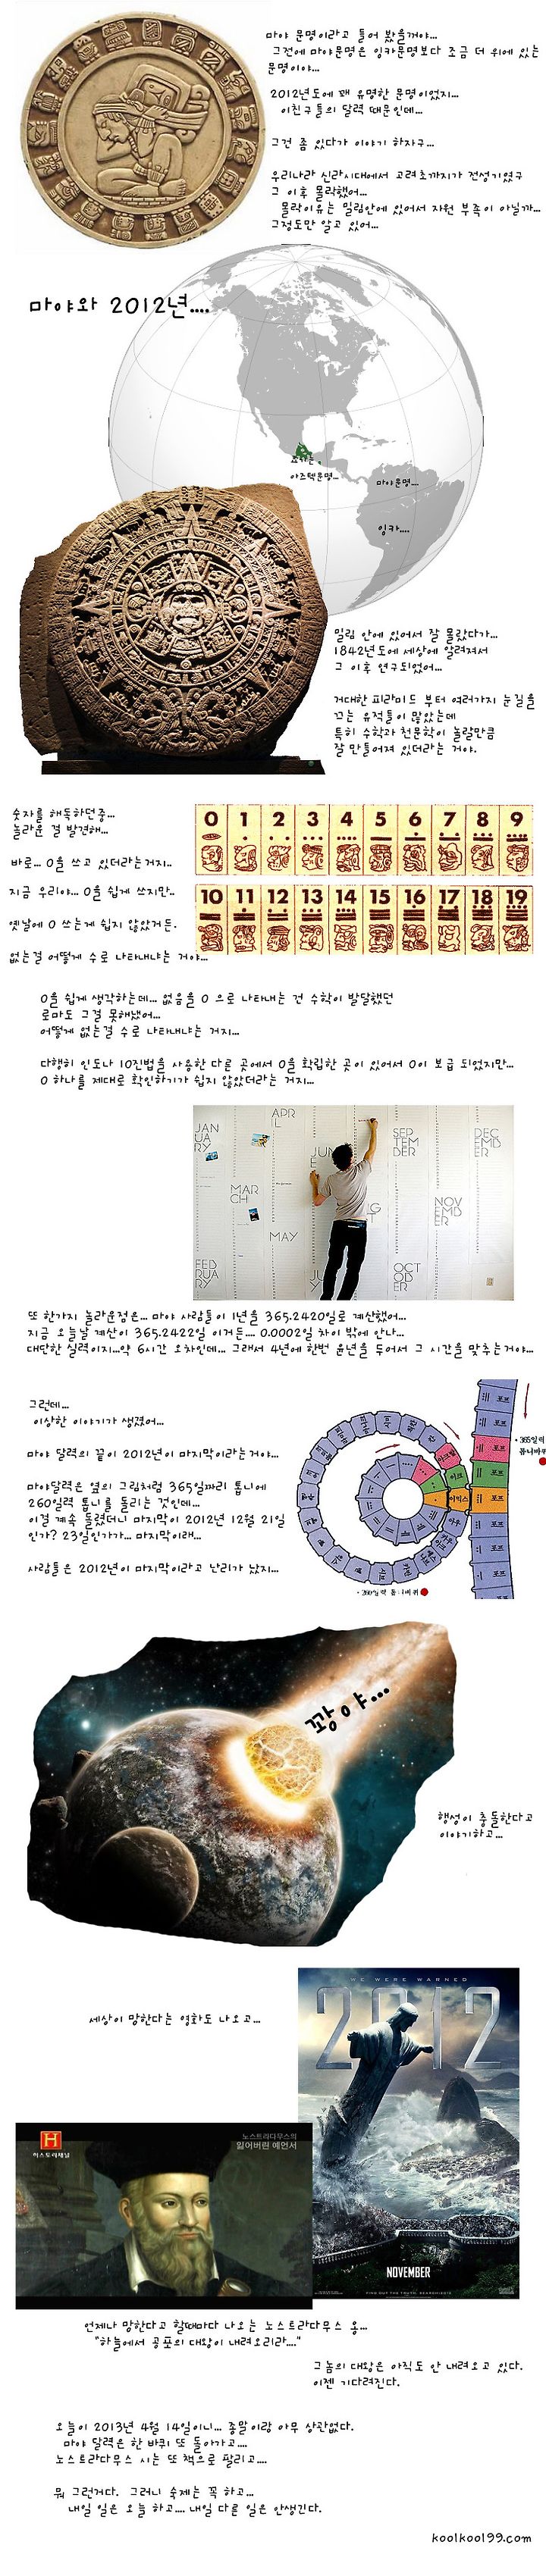 마야 문명이라고 들어 봤을꺼야...
그전에 마야문명은 잉카문명보다 조금 더 위에 있는
문명이야...
2012년도에 꽤 유명한 문명이었지...
이친구들의 달력 때문인데...
그건 좀 있다가 이야기 하자구...
우리나라 신라시대에서 고려초까지가 전성기였구
그 이후 몰락했어...
몰락이유는 밀림안에 있어서 자원 부족이 아닐까...
그정도만 알고 있어...
마야와 2012년....
아즈텍문명...
마야문명...
잉카....
밀림 안에 있어서 잘 몰랐다가...
1842년도에 세상에 알려져서
그 이후 연구되었어...
거대한 피라미드 부터 여러가지 눈길을
끄는 유적들이 많았는데
특히 수학과 천문학이 놀랄만큼
잘 만들어져 있더라는 거야.
숫자를 해독하던중...
놀라운 걸 발견해...
바로... 0을 쓰고 있더라는거지..
지금 우리야... 0을 쉽게 쓰지만..
옛날에 0 쓰는게 쉽지 않았거든.
없는걸 어떻게 수로 나타내냐는 거야...
0 1 2 3 4 5 6 7 8 9
10 11 12 13 14 15 16 17 18 19
0을 쉽게 생각하는데... 없음을 0 으로 나타내는 건 수학이 발달했던
로마도 그걸 못해냈어...
어떻게 없는걸 수로 나타내냐는 거지...
다행히 인도나 10진법을 사용한 다른 곳에서 0을 확립한 곳이 있어서 0이 보급 되었지만...
0 하나를 제대로 확인하기가 쉽지 않았더라는 거지...
JAN
UA
RY
APR
L
SEP
TEM
BER
DEC
EMB
ER
JUN
E
MAR
CH
NOV
EMB
ER
MAY
FEB
RUA
RY
JU
OCT
OB
ER
또 한가지 놀라운점은... 마야 사람들이 1년을 365.2420일로 계산했어...
지금 오늘날 계산이 365.2422일 이거든.... 0.0002일 차이 밖에 안나...
대단한 실력이지...약 6시간 오차인데... 그래서 4년에 한번 윤년을 두어서 그 시간을 맞추는거야...
그런데...
이상한 이야기가 생겼어...
마야 달력의 끝이 2012년이 마지막이라는거야...
마야달력은 옆의 그림처럼 365일짜리 톱니에
260일력 톱니를 돌리는 것인데...
이걸 계속 돌렸더니 마지막이 2012년 12월 21일
인가? 23일인가가... 마지막이래...
사람들은 2012년이 마지막이라고 난리가 났지...
• 365일력
톱니바퀴
이믹스
포프
• 260일력 톱니바퀴
꽝이야...
행성이 충돌한다고
이야기하고...
세상이 망한다는 영화도 나오고...
WE WERE WARNED
2012
NOVEMBER
H
히스토리채널
노스트라다무스의
잃어버린 예언서
언제나 망한다고 할때마다 나오는 노스트라다무스 옹...
"하늘에서 공포의 대왕이 내려오리라...."
그놈의 대왕은 아직도 안 내려오고 있다.
이젠 기다려진다.
오늘이 2013년 4월 14일이니... 종말이랑 아무 상관없다.
마야 달력은 한 바퀴 또 돌아가고....
노스트라다무스 시는 또 책으로 팔리고....
뭐 그런거다. 그러니 숙제는 꼭 하고...
내일 일은 오늘 하고.... 내일 다른 일은 안생긴다.
koolkool99.com